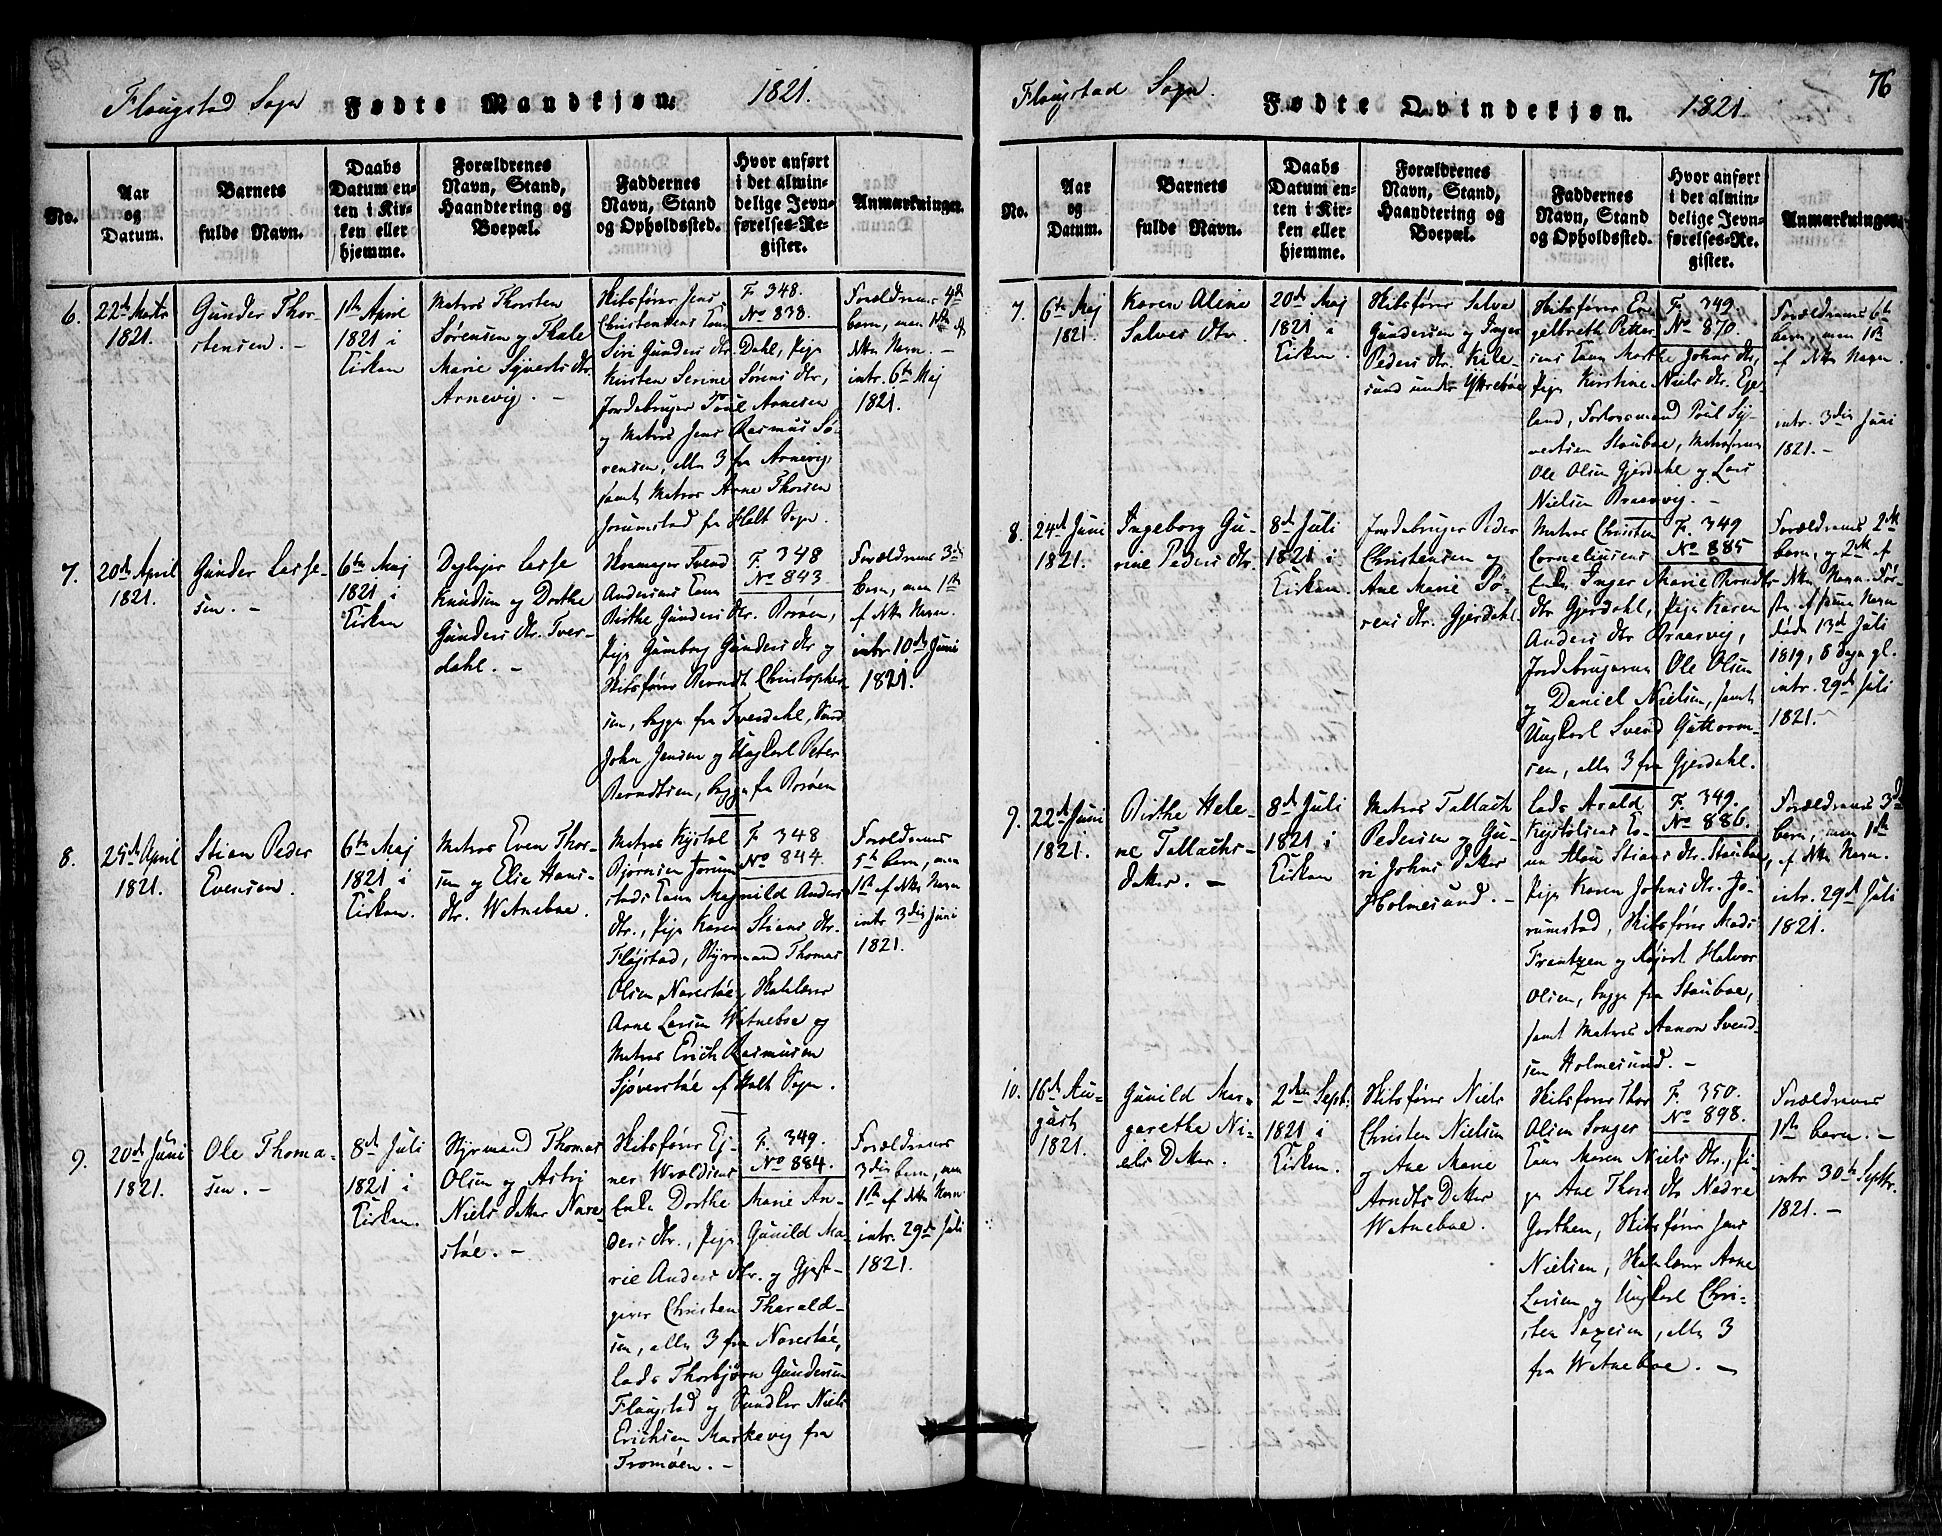 Flaugstad Sogn Fødte Mandkjøn. 1821.
No.
Aar
og
Datum.
Barnets
fulde Navn.
Daabs
Datum en-
ten i Kir-
ken eller
hjemme.
Forældrenes
Navn, Stand,
Haandtering og
Boepæl.
Faddernes
Navn, Stand
og Opholdssted.
Hvor anført
i det almin-
delige Jevn-
førelses-Re-
gister.
Anmærkninger.
6.
22de Marts
1821.
Gunder Thor-
stensen. -
1ste April
1821 i
Kirken
Matros Thorsten
Sørensen og Thale
Marie Sjverts Dtr.
Arnevig. -
Skibsfører Jens
Christensens Kone
Siri Gunders Dtr. Dahl, Pige
Kirsten Serine Sørens Dtr,
Jordebruger Poul Arnesen
og Matros Jens Rasmus Sø-
rensen, alle 3 fra Arnevig,
samt Matros Arne Thorsen
Jorumstad fra Holt Sogn.
F. 348.
No 838.
Forældrenes 4de
barn, men 1ste af
dette Navn. -
intr. 6te Maj
1821.
7.
20de April
1821.
Gunder Lasse-
sen. -
6te Maj
1821 i
Kirken
Dagleier Lasse
Knudsen og Dorthe
Gunders Dtr. Tver-
dahl. -
Svend
Andersens Kone
Birthe Gunders Dtr. Borøen,
Pige Gumborg Gunders Dtr og
Skibsfører Berndt Christopher-
sen, begge fra Tverdahl,
John Jensen og Ungkarl Peter
Berndtsen, begge fra Borøen
F. 348
No 843.
Forældrenes 3die
barn, men 1ste
af dette Navn.
intr 10de Juni
1821.
8.
25de April
1821.
Stian Peder
Evensen.
6te Maj
1821 i
Kirken.
Matros Even Thor-
sen og Else Hans-
Dtr. Watneboe.
Matros Kjstol
Bjørnsen Jorum-
stads Kone Magnild Anders
Dtr., Pige Karen Stians Dtr.
Fløjstad, Styrmand Thomas
Olsen Narestøe,
Arne Larsen Watneboe og
Matros Erich Rasmusen
Sjøverstøe af Holt Sogn.
F. 348
No 844.
Forældrenes
5te barn, men
1ste af dette Navn
intr 3die Juni
1821.
9.
20de Juni
1821.
Ole Thoma-
sen. -
8de Juli
1821 i
Kirken.
Styrmand Thomas
Olsen og Astri
Niels Datter Nare-
støe. -
Skibsfører Ej-
ner Wroldsens
Enke Dorthe Marie An-
ders Dtr., Pige Gunild Ma-
rie Anders Dtr. og Gjest-
giver Christen Tharald-
sen, alle 3 fra Narestøe,
Lods Thorbjørn Gundersen
Flaugstad og Niels
Erichsen Markevig fra
Tromøen. -
F. 349.
No 884.
Forældrenes
3die barn, men
1ste af dette Navn
intr. 29de Juli
1821.
Flaugstad Sogn. Fødte Qvindekjøn. 1821. 76
No.
Aar
og
Datum.
Barnets
fulde Navn.
Daabs
Datum en-
ten i Kir-
ken eller
hjemme.
Forældrenes
Navn, Stand,
Haandtering og
Boepæl.
Faddernes
Navn, Stand
og Opholdssted.
Hvor anført
i det almin-
delige Jevn-
førelses-Re-
gister.
Anmærkninger.
7.
6te Maj
1821.
Karen Aline
Salves Dtr.
20de Maj
1821 i
Kirken.
Skibsfører Salve
Gundersen og Inger
Peders Dtr. Kale-
sund under Yttreboe
Skibsfører En-
gelbrett Petter-
sens Kone Marthe Johns Dtr,
Pige Kirstine Niels Dtr. Ege-
land, Poul Sy-
vertsen Stauboe, Matroserne
Ole Olsen Gjerdahl og Lars
Nielsen Braarvig. -
F. 349
No 870.
Forældrenes 6te
barn, men 1ste
af dette Navn.
intr. 3die Juni
1821. -
8.
24de Juni
1821.
Ingeborg Gu-
rine Peders Dtr.
8de Juli
1821 i
Kirken.
Jordebruger Peder
Christensen og
Ane Marie Sø-
rens Dtr. Gjerdahl.
Matros Christen
Corneliusens
Enke, Inger Marie Berndts
Dtr Gjerdahl, Pige Karen
Anders Dtr Braarvig,
Jordebrugerne Ole Olsen
og Daniel Nielsen, samt
Ungkarl Svend Guttorm-
sen, alle 3 fra Gjerdahl.
F. 349
No 885
Forældrenes 2det
barn, og 2det af
dette Navn. Før-
ste af samme Navn
døde 13de Juli
1819, 8 dage gl.
intr. 29de Juli
1821.
9.
22de Juni
1821.
Birthe Hele-
ne Tallachs-
Datter. -
8de Juli
1821 i
Kirken
Matros Tallach
Pedersen og Gu-
ri Johns Datter
Holmesund. -
Lods Asald
Kjstolsens Ko-
ne Alou Stians Dtr. Stauboe,
Pige Karen Johns Dtr. Jo-
rumstad, Skibsfører Mads
Frantzen og Halvor
Olsen, begge fra Stauboe,
samt Matros Aanon Svend-
sen Holmesund. -
F. 349.
No 886.
Forældrenes 3die
barn, men 1ste
af dette Navn.
intr. 29de Juli
1821.
10.
16de Au-
gust
1821.
Gunild Mar-
garethe Ni-
els Datter.
2den Sept.
1821 i
Kirken.
Skibsfører Niels
Christen Nielsen
og Ane Marie
Arndts Datter
Watneboe.
Skibsfører Thor
Olsen Songer
Kone Maren Niels Dtr., Pi-
ge Ane Thors Dtr Nedre
Garthen, Skibsfører Jens
Nielsen, Arne
Larsen og Ungkarl Chri-
sten Saxesen, alle 3
fra Watneboe. -
F. 350.
No 898.
Forældrenes
1ste barn. -
intr 30te Septbr.
1821. -